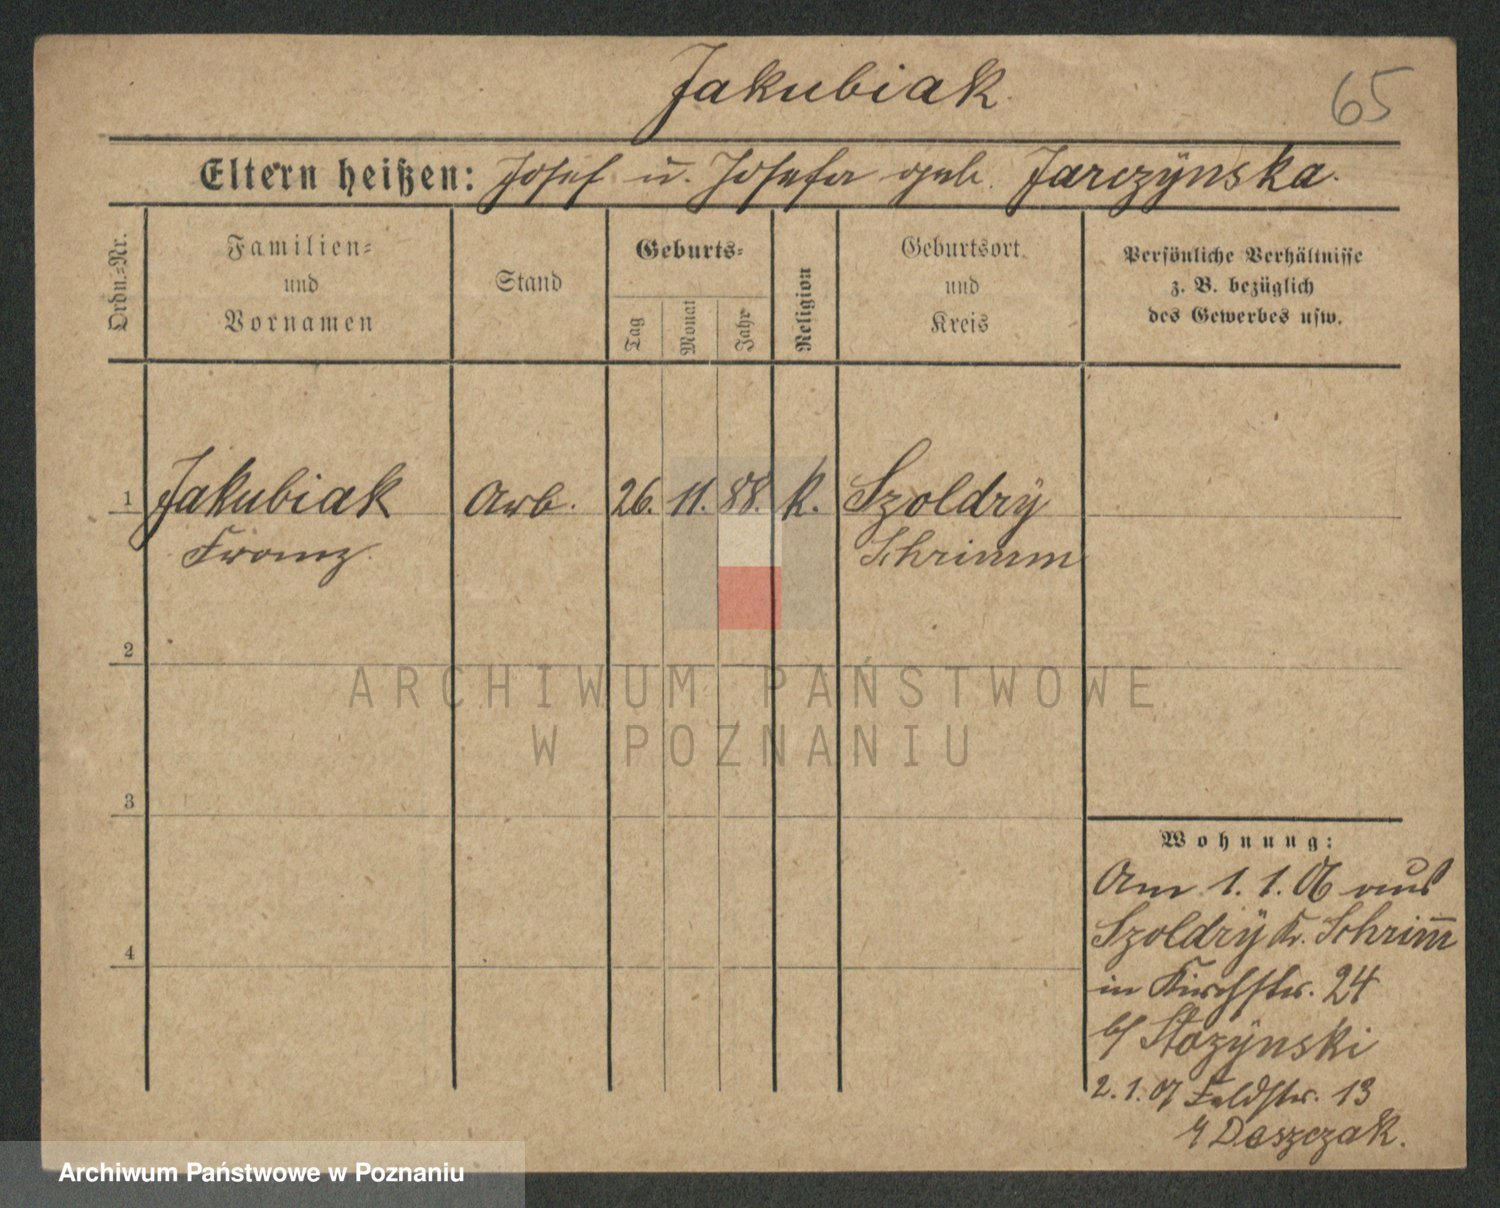 Jakubiak
65
Eltern heißen: Josef u. Josefa geb. Jarczÿnska.
Ordn.-Nr.
Familien-
und
Vornamen
Stand
Geburts-
Tag
Monat
Jahr
Religion
Geburtsort
und
Kreis
Persönliche Verhältnisse
z. B. bezüglich
des Gewerbes usw.
1 Jakubiak Arb. 26. 11. 88. k. Szoldrÿ
Franz Schrimm
2
3
4
Wohnung:
Am 1. 1. 06 aus
Szoldrÿ Kr. Schrim̅
in Kirchstr. 24
b/ Stozÿnski
2. 1. 07 Feldstr. 13
Daszczak.
ARCHIWUM PAŃSTWOWE
W POZNANIU
Archiwum Państwowe w Poznaniu